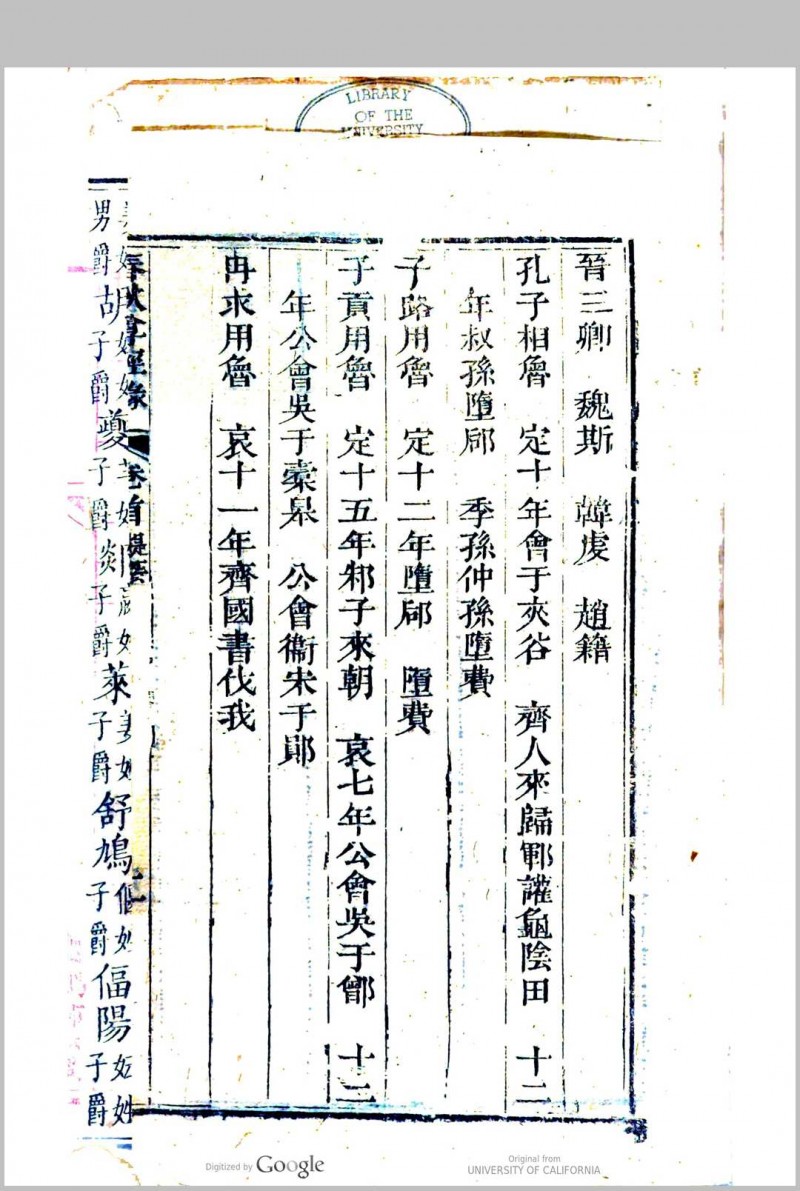 LIBRARY
OF THE
UNIVERSITY
晉三卿　魏斯　韓虔　趙籍
孔子相魯　定十年會于夾谷　齊人來歸鄆讙龜陰田　十二
年叔孫墮郈　季孫仲孫墮費
子路用魯　定十二年墮郈　墮費
子貢用魯　定十五年邾子來朝　哀七年公會吳于鄫　十二
年公會吳于橐皋　公會衞宋于鄖
冉求用魯　哀十一年齊國書伐我
卷首 提要
男爵 胡 子爵 夔 子爵 子爵 萊 子爵 舒鳩 子爵 偪陽 子爵
姜姓 偃姓 妘姓
Digitized by Google
Original from
UNIVERSITY OF CALIFORNIA